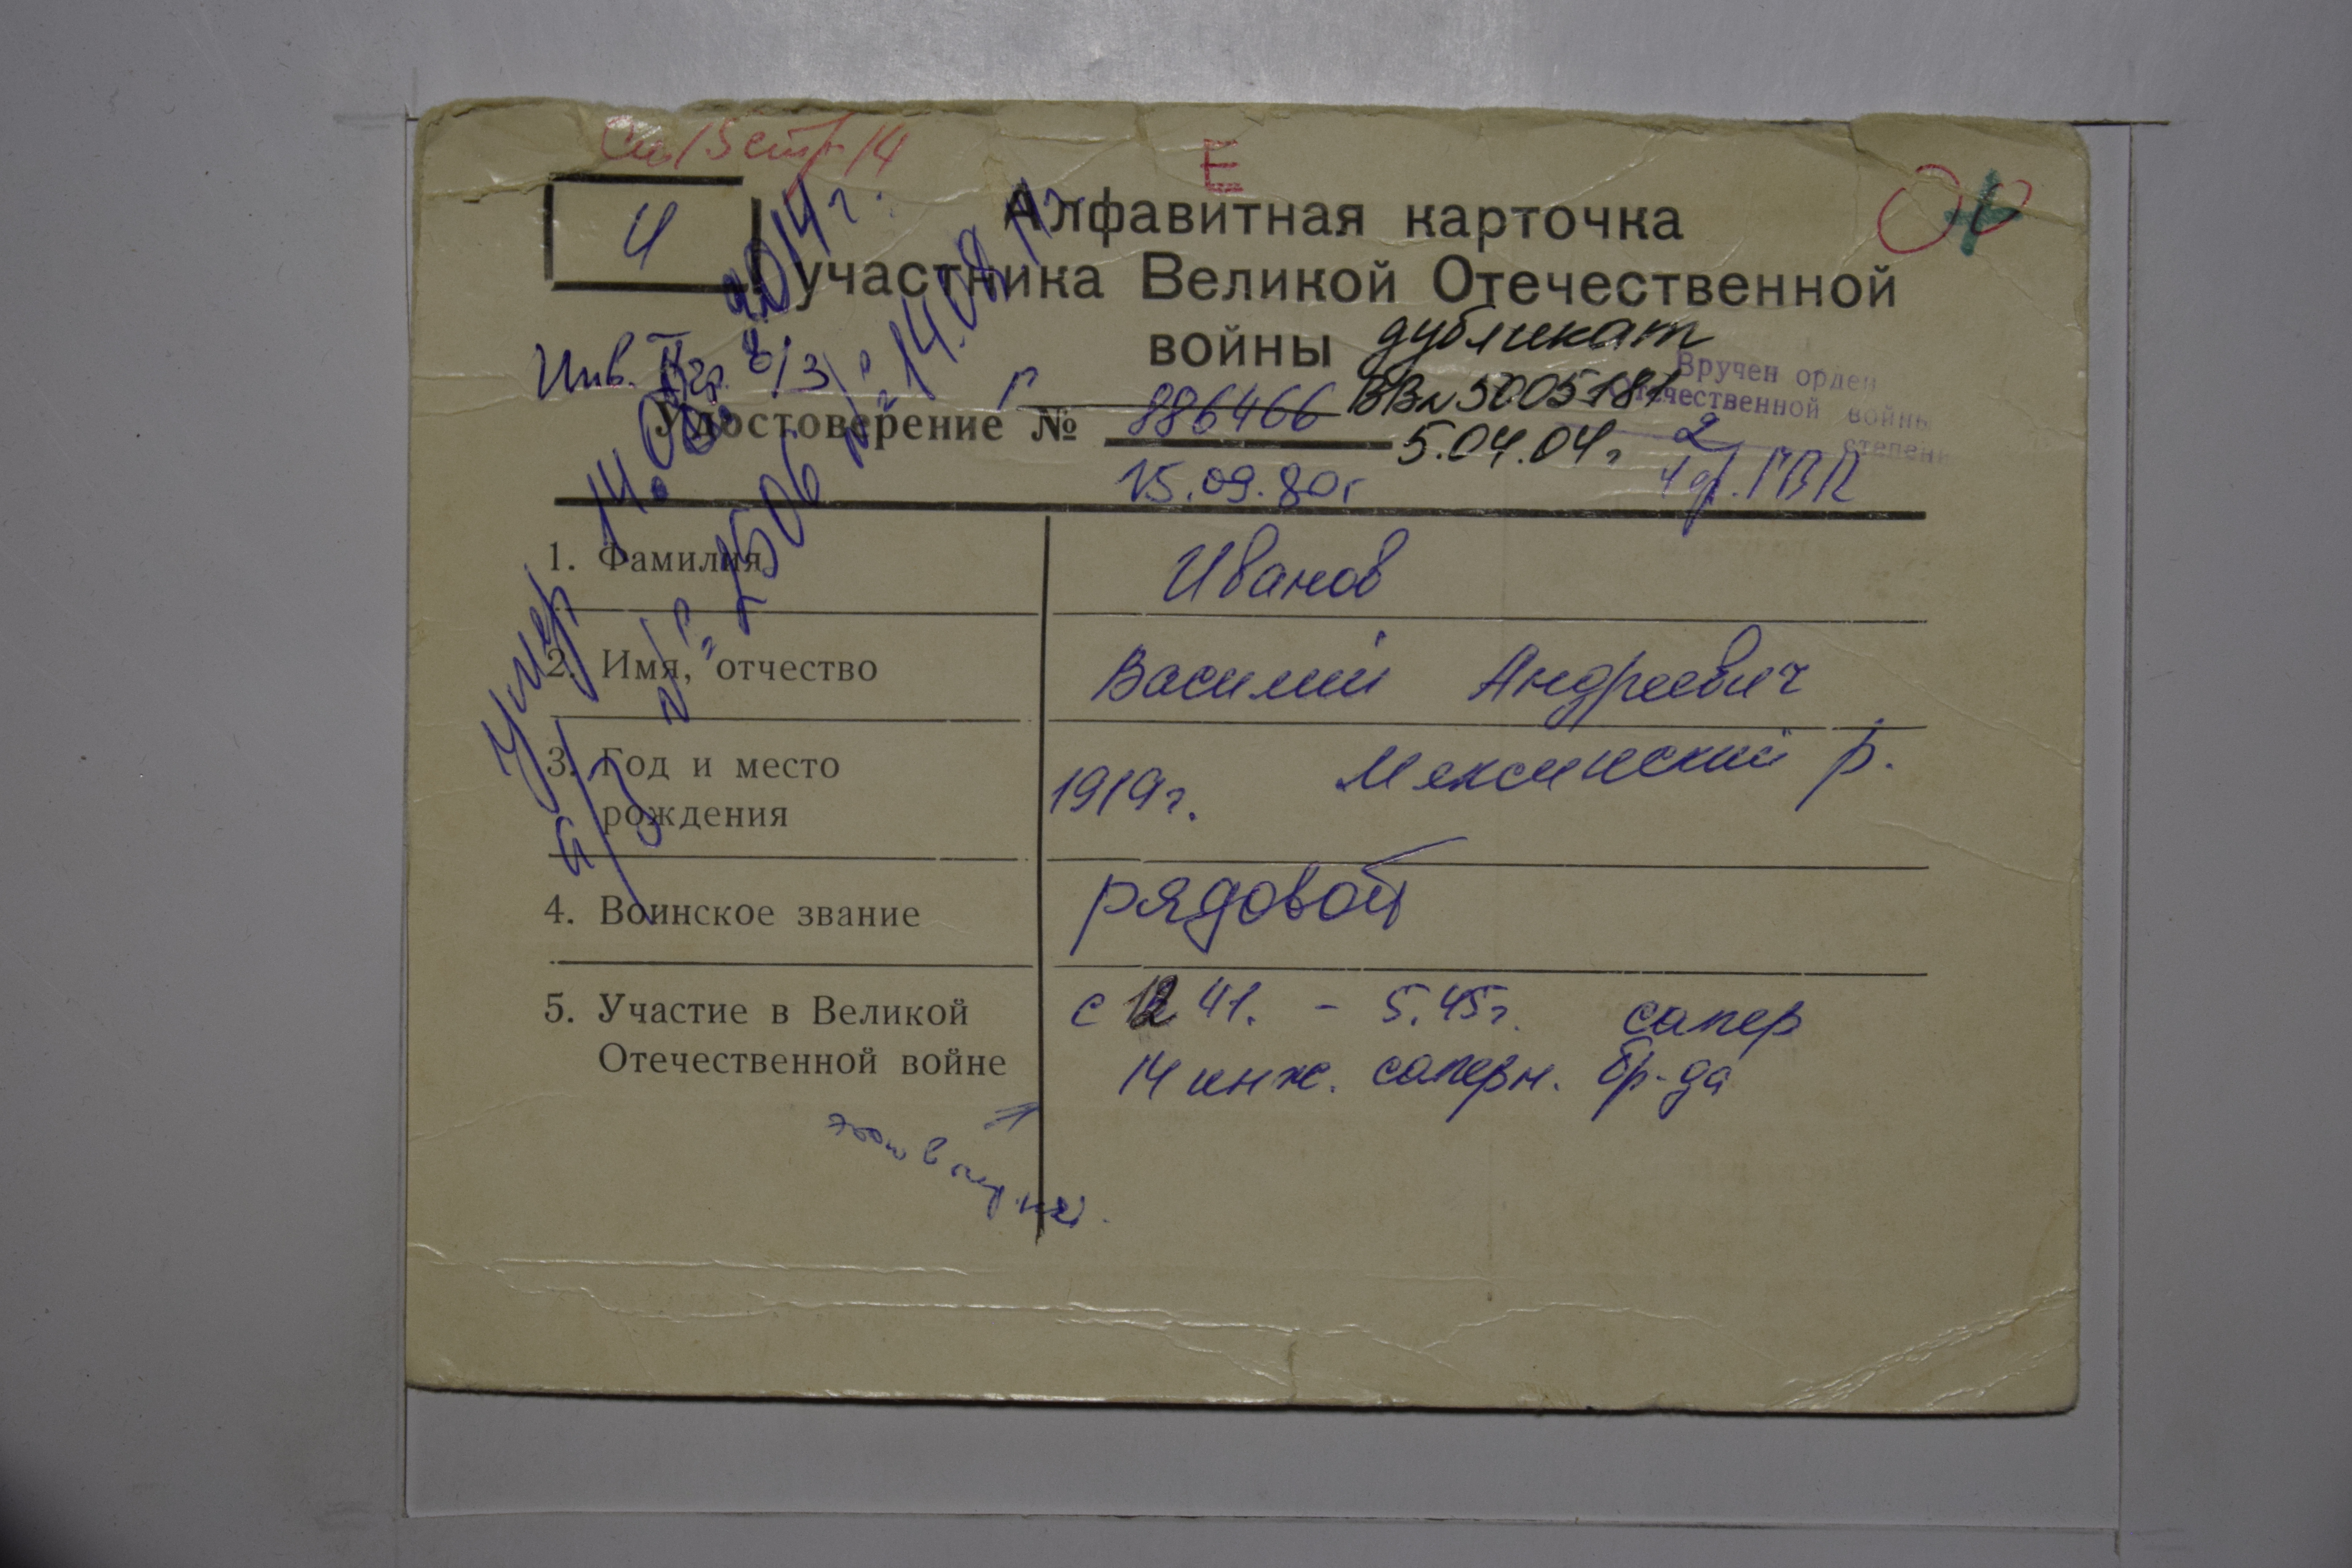 Е
И
Алфавитная карточка
участника Великой Отечественной
войны дубликат
Инв. II гр. б/з
Удостоверение № Г 886466 ВВ№5005181
5.04.04г
15.09.80г
Вручен орден
Отечественной войны
2 степени
Умер 14.08.2014г.
№ 1506 № 14.08.14г
1. Фамилия Иванов
2. Имя, отчество Василий Андреевич
3. Год и место
рождения 1919г. Мексинский р.
4. Воинское звание рядовой
5. Участие в Великой с 12 41. - 5.45г. сапер
Отечественной войне 14 инж. саперн. бр-да